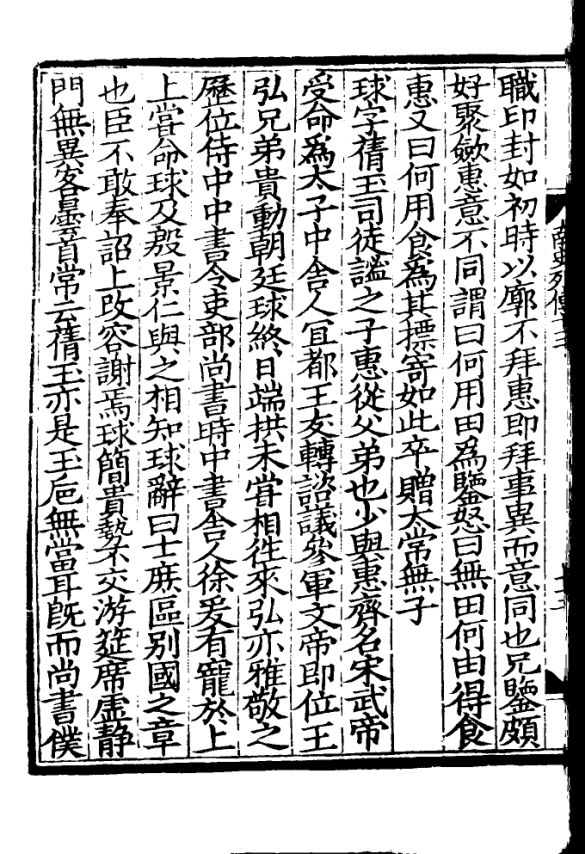 職印封如初時以廓不拜惠即拜事異而意同也兄鑒頗
好聚斂惠意不同謂曰何用田爲鑒怒曰無田何由得食
惠又曰何用食爲其摽寄如此卒贈太常無子
球字蒨玉司徒謐之子惠從父弟也少與惠齊名宋武帝
受命爲太子中舎人冝都王友轉諮議參軍文帝即位王
弘兄弟貴動朝廷球終日端拱未甞相徃來弘亦雅敬之
歷位侍中中書令吏部尚書時中書舎人徐爰有寵於上
上甞命球及殷景仁與之相知球辭曰士庶區別國之章
也臣不敢奉詔上改容謝焉球簡貴勢不交游筵席虛靜
門無異客曇首常云蒨玉亦是玉巵無當耳旣而尚書僕